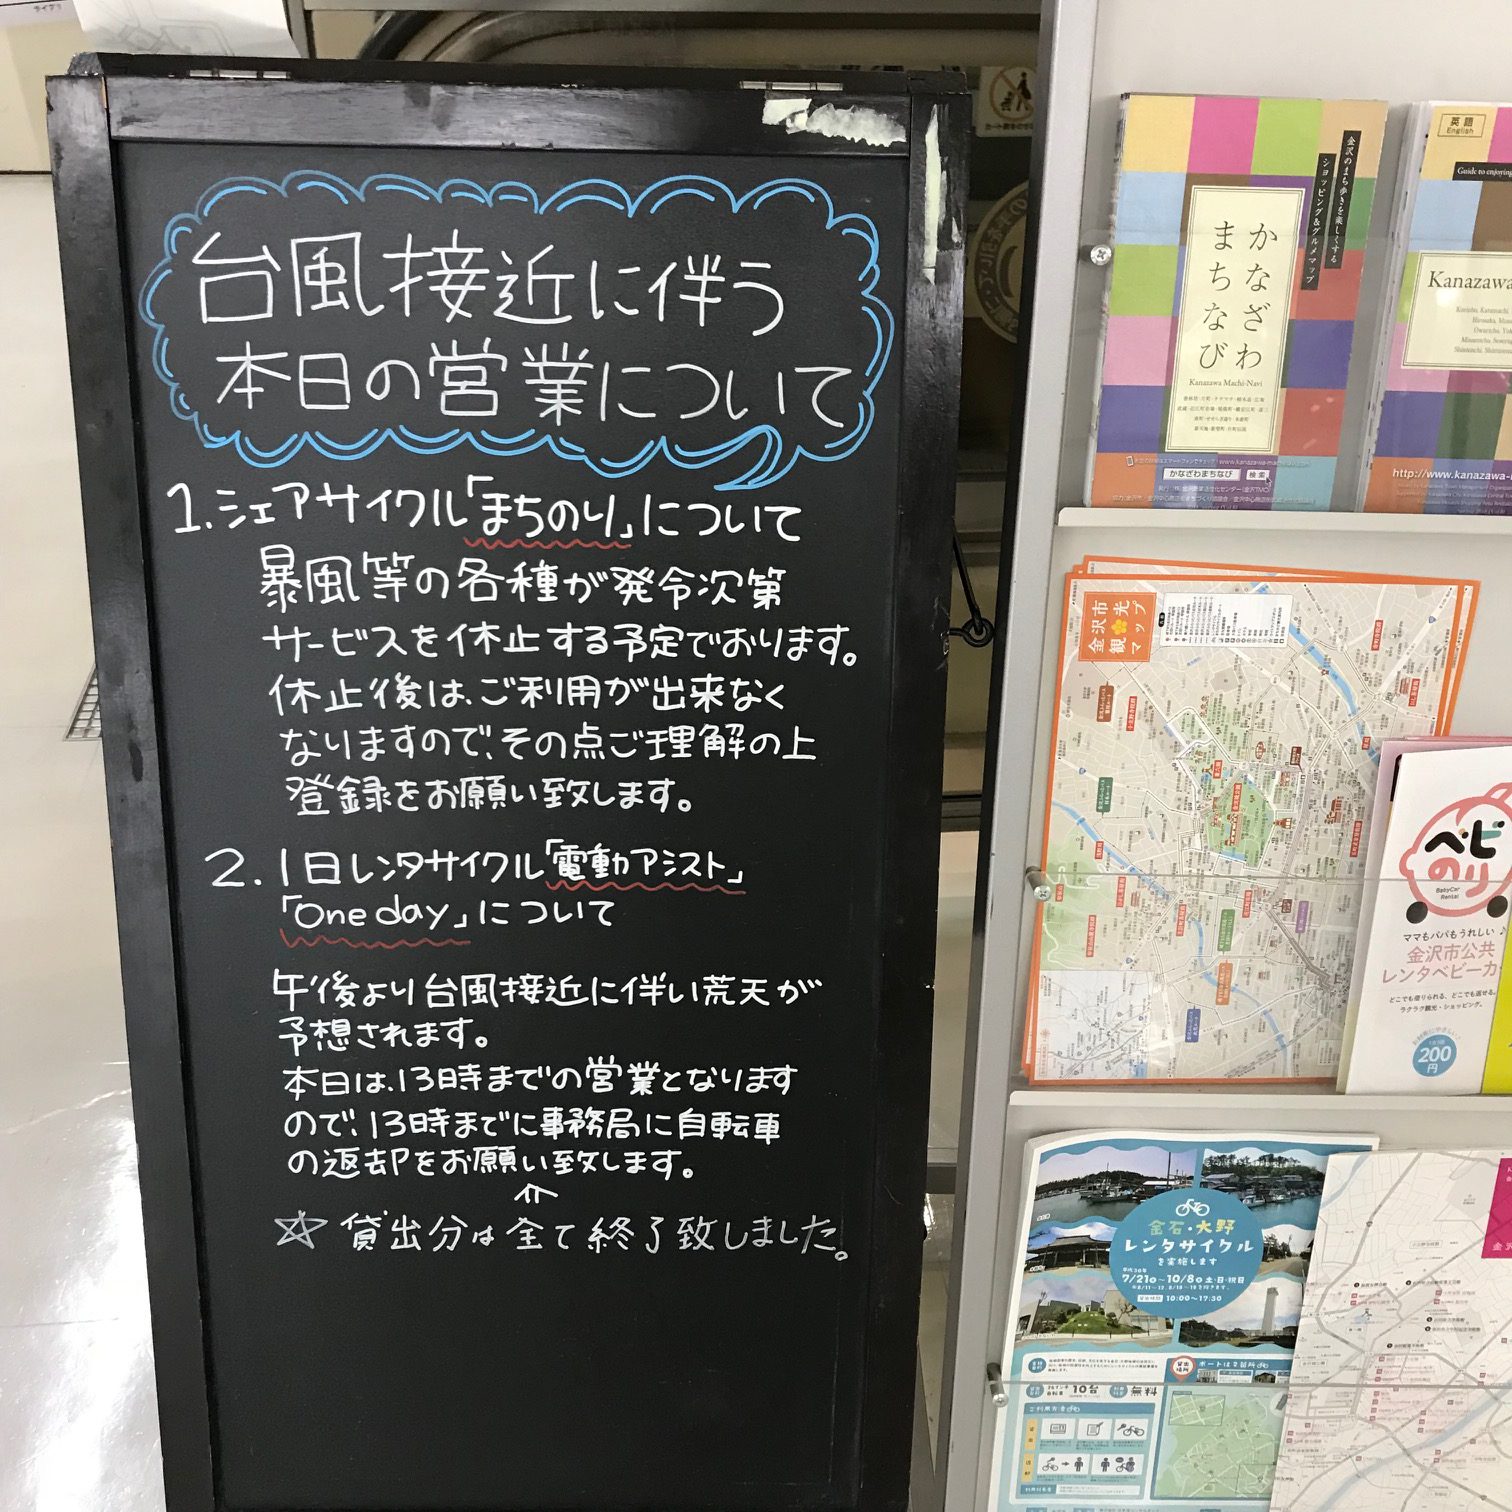 台風接近に伴う
本日の営業について
1.シェアサイクル「まちのり」について
暴風等の各種が発令次第
サービスを休止する予定でおります。
休止後は、ご利用が出来なく
なりますので、その点ご理解の上
登録をお願い致します。
2.1日レンタサイクル「電動アシスト」
「One day」について
午後より台風接近に伴い荒天が
予想されます。
本日は、13時までの営業となります
ので、13時までに事務局に自転車
の返去Pをお願い致します。
☆貸出分は全て終了致しました。
金沢のまち歩きを楽しくする
ショッピング&グルメマップ
かなざわ
まちなび
Kanazawa Machi-Navi
かなざわまちなび 検索
英語
English
Guide to enjoying
Kanazawa
http://www.kanazawa-m
金沢市
観光
マップ
ベビ
のり
BabyCar
Rental
ママもパパもうれしい♪
金沢市公共
レンタベビーカ
どこでも借りられる、どこでも返せる。
ラクラク観光・ショッピング。
200
円
金石・大野
レンタサイクル
を実施します
平成30年
7/21㊏〜10/8㊊土・日・祝日
10:00〜17:30
10台
無料
ポートは2箇所
ご利用方法